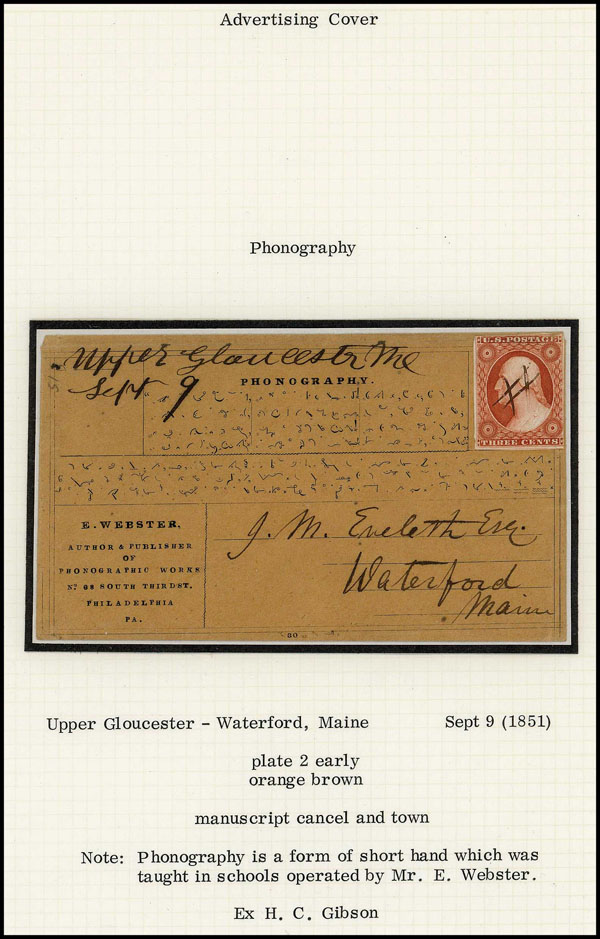 Advertising Cover
Phonography
Upper Gloucester Me
Sept 9
PHONOGRAPHY.
U.S. POSTAGE
THREE CENTS
E. WEBSTER,
AUTHOR & PUBLISHER
OF
PHONOGRAPHIC WORKS
SOUTH THIRD ST.
PHILADELPHIA
PA.
J. M. Eveleth Esq.
Waterford
Maine
80
Upper Gloucester - Waterford, Maine Sept 9 (1851)
plate 2 early
orange brown
manuscript cancel and town
Note: Phonography is a form of short hand which was
taught in schools operated by Mr. E. Webster.
Ex H. C. Gibson